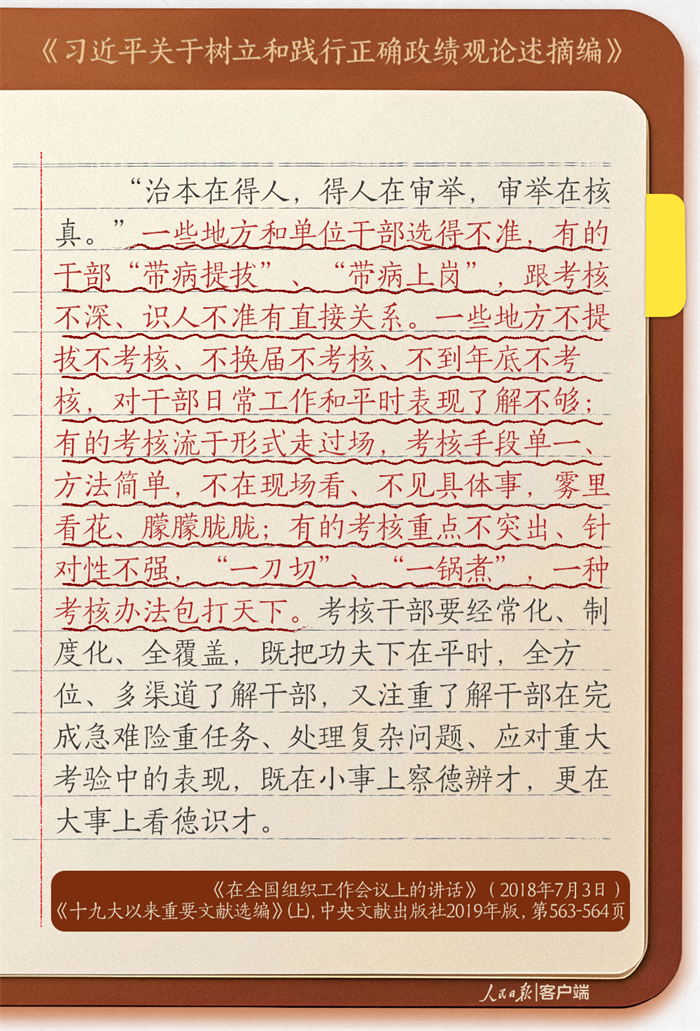 《习近平关于树立和践行正确政绩观论述摘编》
“治本在得人，得人在审举，审举在核
真。”一些地方和单位干部选得不准，有的
干部“带病提拔”、“带病上岗”，跟考核
不深、识人不准有直接关系。一些地方不提
拔不考核、不换届不考核、不到年底不考
核，对干部日常工作和平时表现了解不够；
有的考核流于形式走过场，考核手段单一、
方法简单，不在现场看、不见具体事，雾里
看花、朦朦胧胧；有的考核重点不突出、针
对性不强，“一刀切”、“一锅煮”，一种
考核办法包打天下。考核干部要经常化、制
度化、全覆盖，既把功夫下在平时，全方
位、多渠道了解干部，又注重了解干部在完
成急难险重任务、处理复杂问题、应对重大
考验中的表现，既在小事上察德辨才，更在
大事上看德识才。
《在全国组织工作会议上的讲话》（2018年7月3日）
《十九大以来重要文献选编》(上)，中央文献出版社2019年版，第563-564页
人民日报|客户端